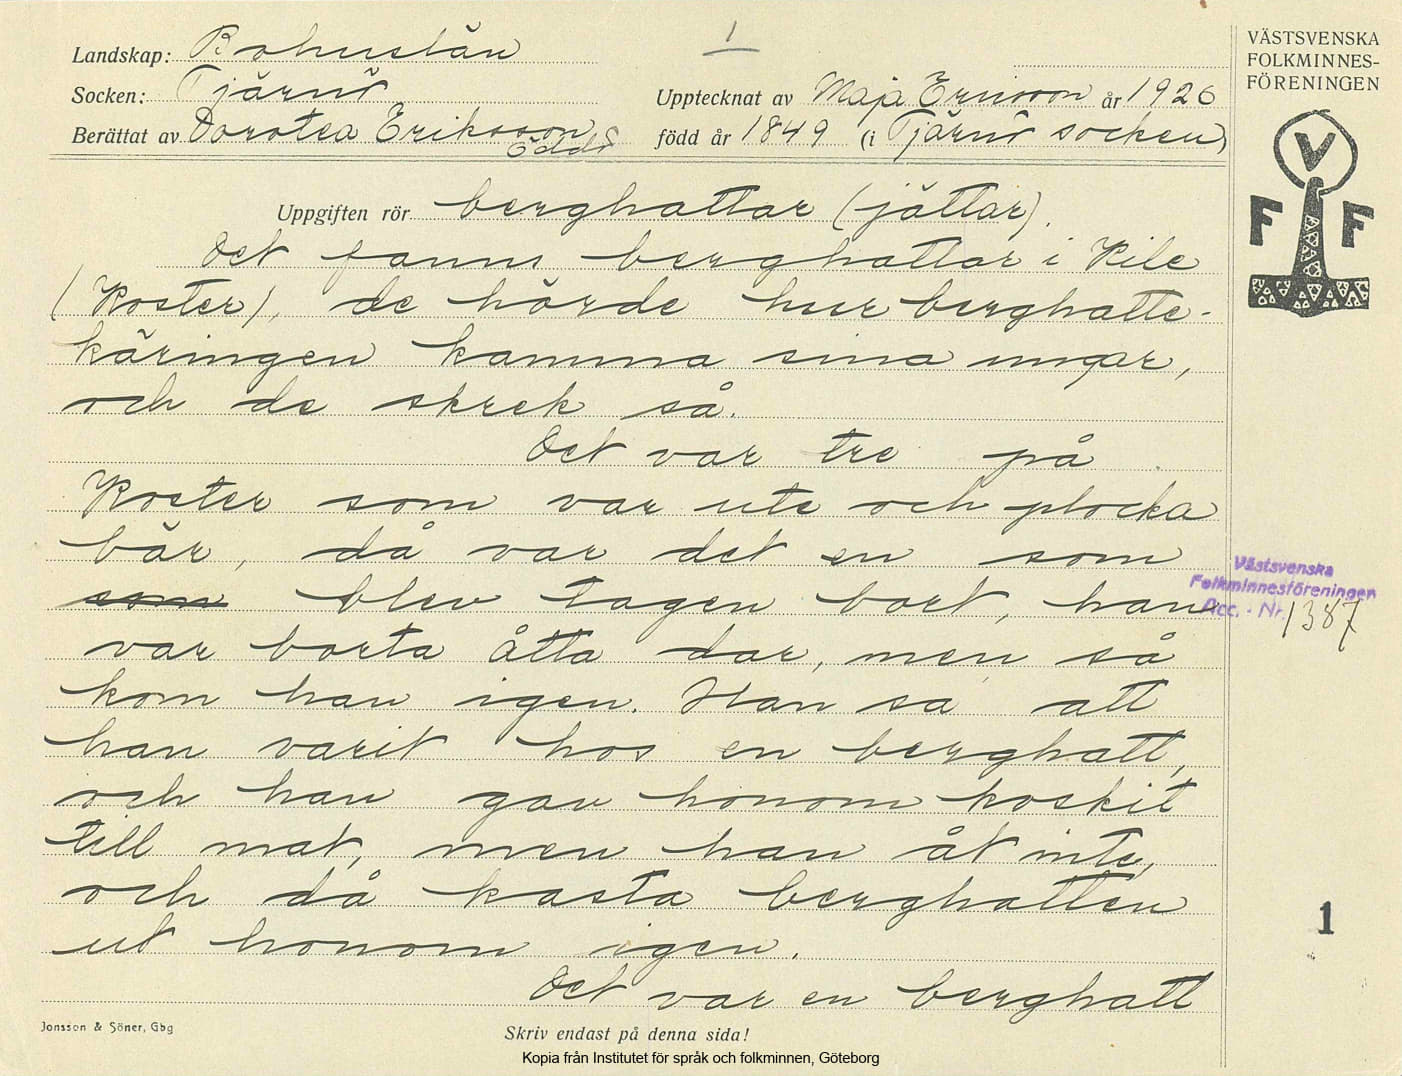 1
Landskap: Bohuslän
Socken: Tjärnö
Upptecknat av Maja Ericson år 1926
Berättat av Dorotea Eriksson
född år 1849 (i Tjärnö socken)
VÄSTSVENSKA
FOLKMINNES-
FÖRENINGEN
V
F F
Uppgiften rör berghattar (jättar).
Det fanns berghattar i Kile
(Koster), de hörde hur berghatte-
käringen kamma sina ungar,
och de skrek så.
Det var tre på
Koster som var ute och plocka
bär, då var det en som
som blev tagen bort, han
var borta åtta dar, men så
kom han igen. Han sa att
han varit hos en berghatt,
och han gav honom koskit
till mat, men han åt inte,
och då kasta berghatten
ut honom igen.
Det var en berghatt
Västsvenska
Folkminnesföreningen
Acc. - Nr. 1387
1
Jonsson & Söner, Gbg
Skriv endast på denna sida!
Kopia från Institutet för språk och folkminnen, Göteborg